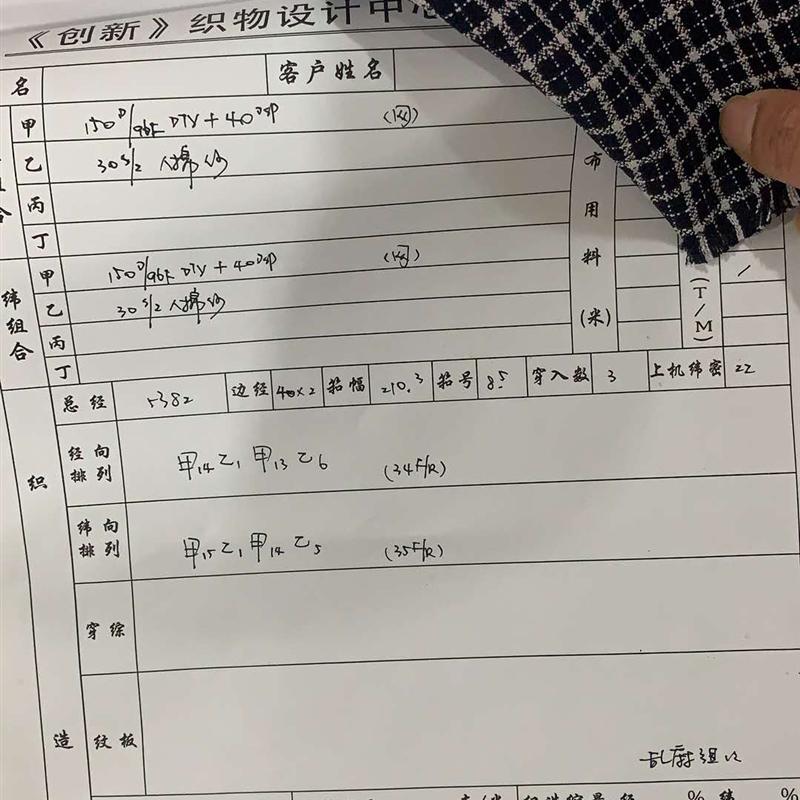 《创新》织物设计中心
名 客户姓名
甲 150D/96F DTY + 40DSP
乙 30S/2 人棉纱
丙
丁
合
布用料(米)
(T/M)
纬组合
甲 150D/96F DTY + 40DSP
乙 30S/2 人棉纱
丙
丁
总经 5382 边经 40×2 筘幅 210.3 筘号 85 穿入数 3 上机纬密 22
织造
经向排列 甲14 乙1 甲13 乙6 (34F/R)
纬向排列 甲15 乙1 甲14 乙5 (35F/R)
穿综
纹板
乱麻组织
% 纬 %